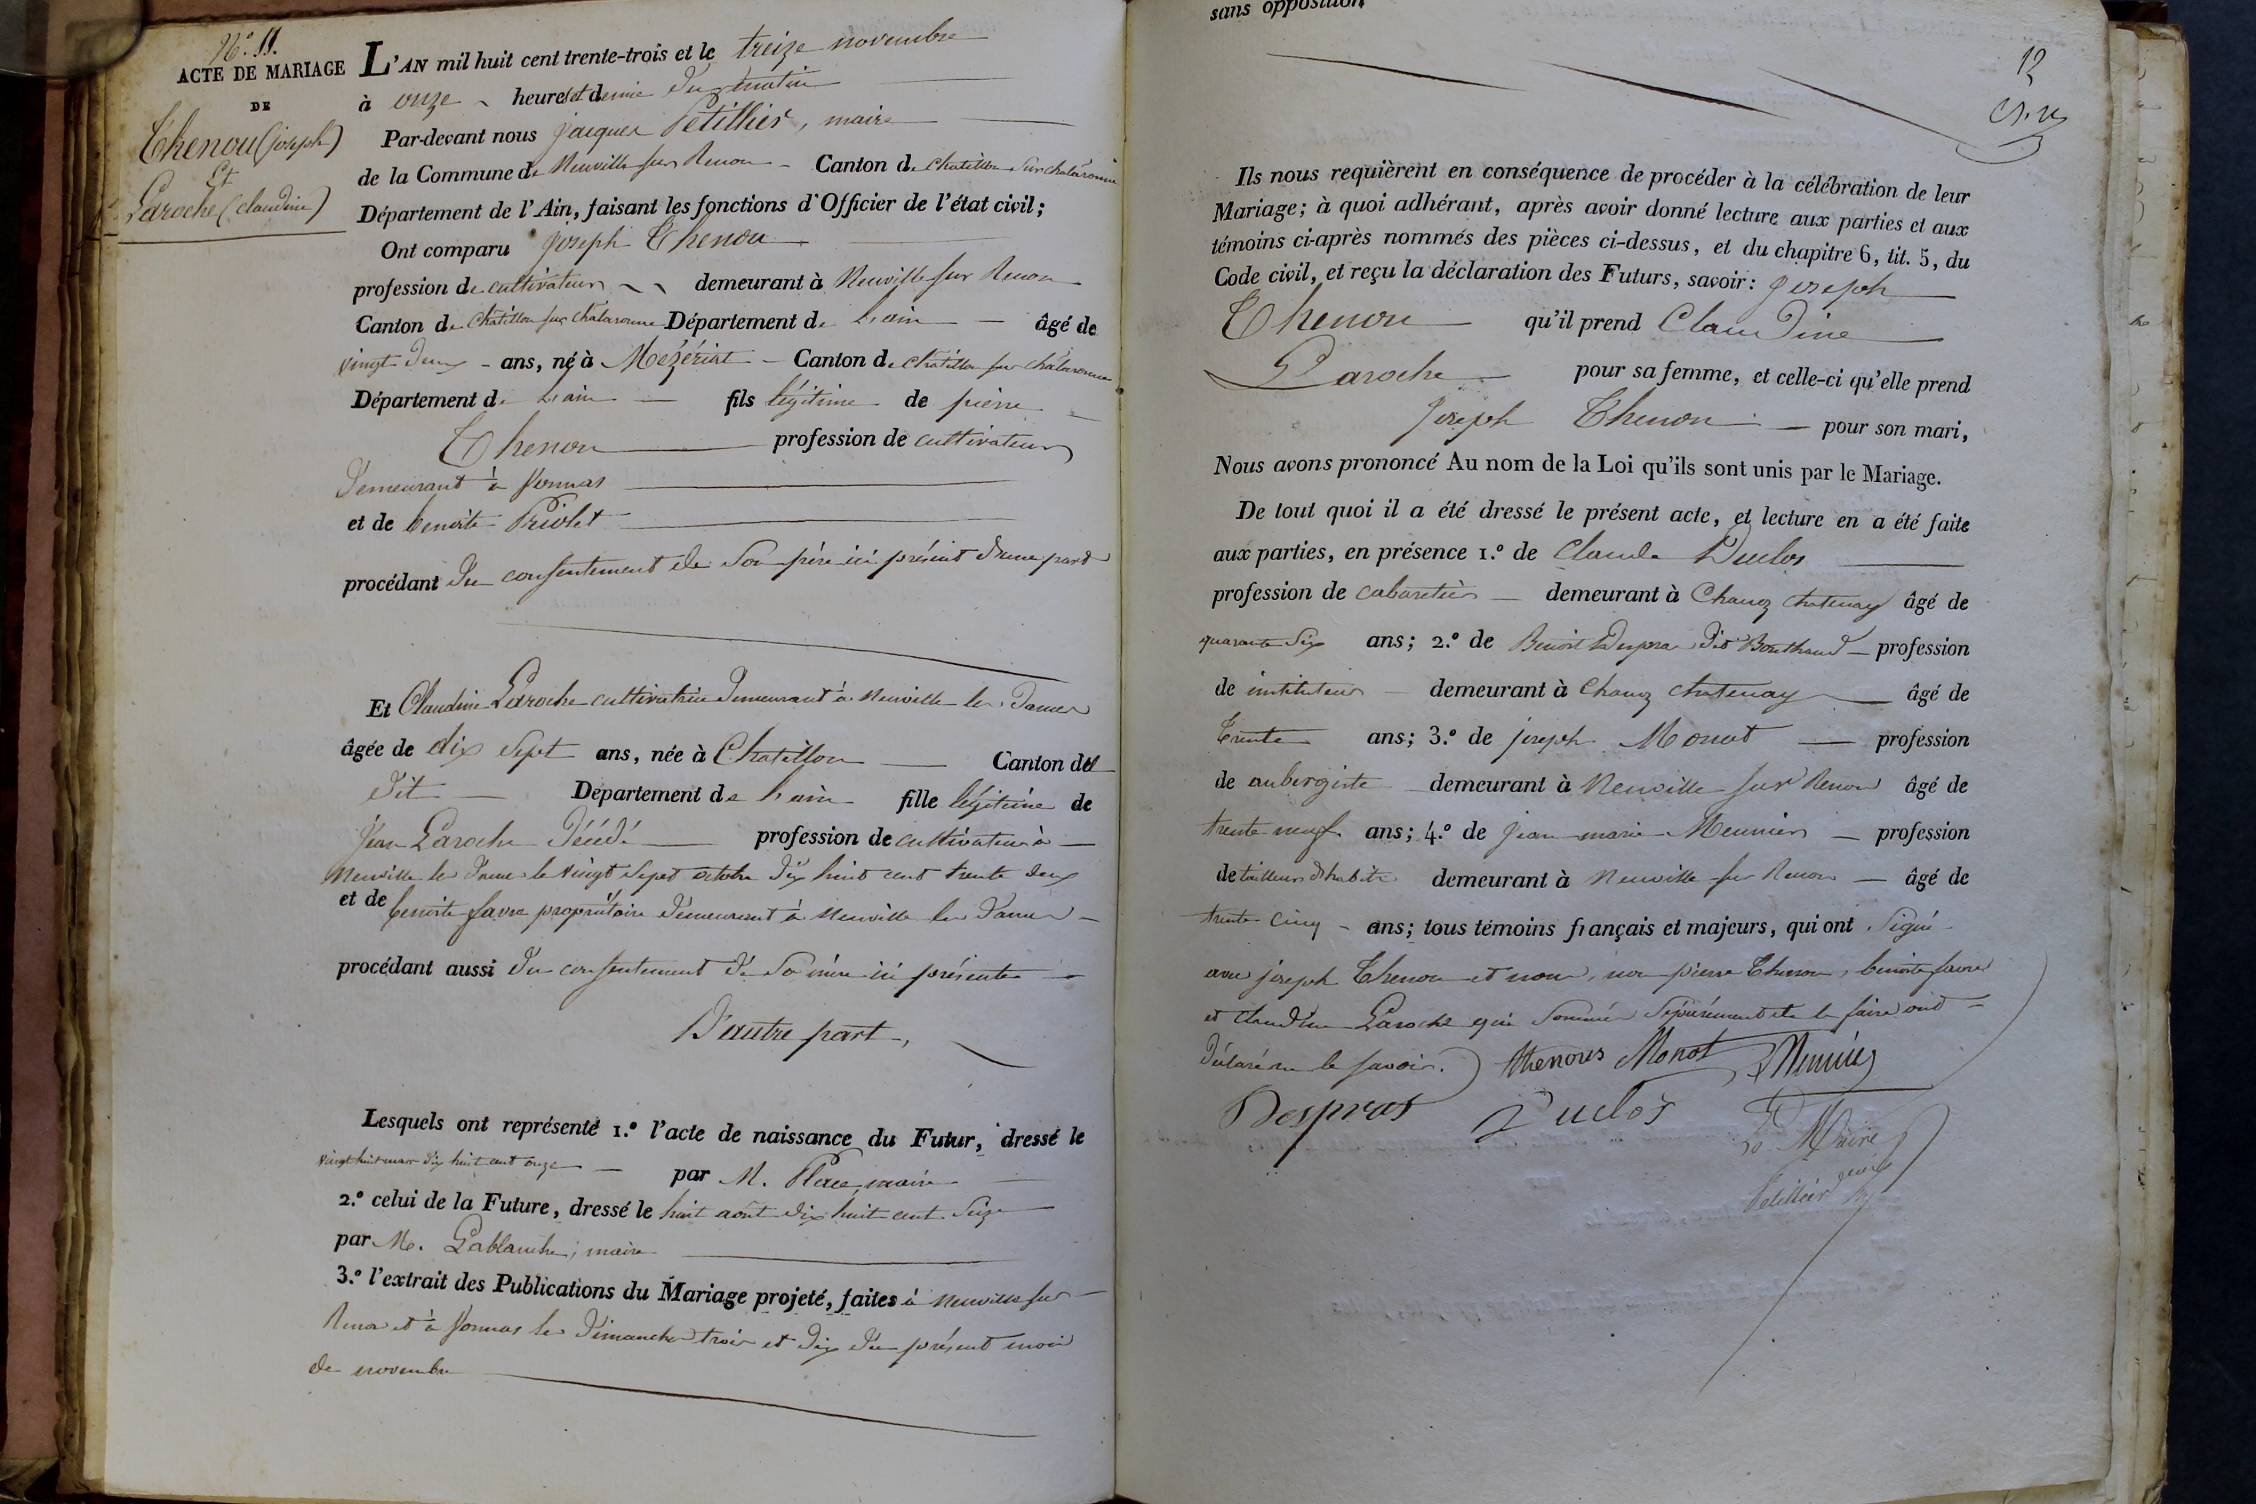 N.º 11.
ACTE DE MARIAGE
DE
Thenou (joseph)
Et
Laroche (claudine)
L'AN mil huit cent trente-trois et le treize novembre
à onze heures et demie du matin
Par-devant nous jacques Petillier, maire
de la Commune de Neuville sur Renon Canton de chatillon sur chalaronne
Département de l'Ain, faisant les fonctions d'Officier de l'état civil;
Ont comparu joseph Thenou
profession de cultivateur demeurant à Neuville sur Renon
Canton de chatillon sur chalaronne Département de L'ain âgé de
vingt deux ans, né à Mézériat Canton de chatillon sur chalaronne
Département de L'ain fils légitime de pierre
Thenou profession de cultivateur
demeurant à Vonnas
et de benoite Priolet
procédant du consentement de son père ici présent d'une part
Et Claudine Laroche cultivatrice demeurant à Neuville les Dames
âgée de dix sept ans, née à Chatillon Canton du
dit Département de L'ain fille légitime de
Jean Laroche décédé profession de cultivateur à
Neuville les Dames le vingt sept octobre dix huit cent trente deux
et de benoite favre propriétaire demeurant à Neuville les Dames
procédant aussi du consentement de sa mère ici présente
D'autre part,
Lesquels ont représenté 1.º l'acte de naissance du Futur, dressé le
vingt huit mars dix huit cent onze par M. Place, maire
2.º celui de la Future, dressé le huit août dix huit cent seize
par M. Lablanche, maire
3.º l'extrait des Publications du Mariage projeté, faites à Neuville sur
Renon et à Vonnas les dimanches trois et dix du présent mois
de novembre
sans opposition
12
Ils nous requièrent en conséquence de procéder à la célébration de leur
Mariage; à quoi adhérant, après avoir donné lecture aux parties et aux
témoins ci-après nommés des pièces ci-dessus, et du chapitre 6, tit. 5, du
Code civil, et reçu la déclaration des Futurs, savoir: Joseph
Thenou qu'il prend Claudine
Laroche pour sa femme, et celle-ci qu'elle prend
Joseph Thenou pour son mari,
Nous avons prononcé Au nom de la Loi qu'ils sont unis par le Mariage.
De tout quoi il a été dressé le présent acte, et lecture en a été faite
aux parties, en présence 1.º de Claude Duclos
profession de cabaretier demeurant à Chanoz chatenay âgé de
quarante six ans; 2.º de Benoit Despra dit Bouthaud profession
de instituteur demeurant à Chanoz chatenay âgé de
trente ans; 3.º de joseph Monat profession
de aubergiste demeurant à Neuville sur Renon âgé de
trente neuf ans; 4.º de jean marie Meunier profession
de tailleur d'habits demeurant à Neuville sur Renon âgé de
trente cinq ans; tous témoins français et majeurs, qui ont signé
avec joseph Thenou et nous, non pierre Thenou, benoite favre
et claudine Laroche qui sommés séparément de le faire ont
déclaré ne le savoir. thenous Monot Meunier
Despras Duclos
Maire
Petillier